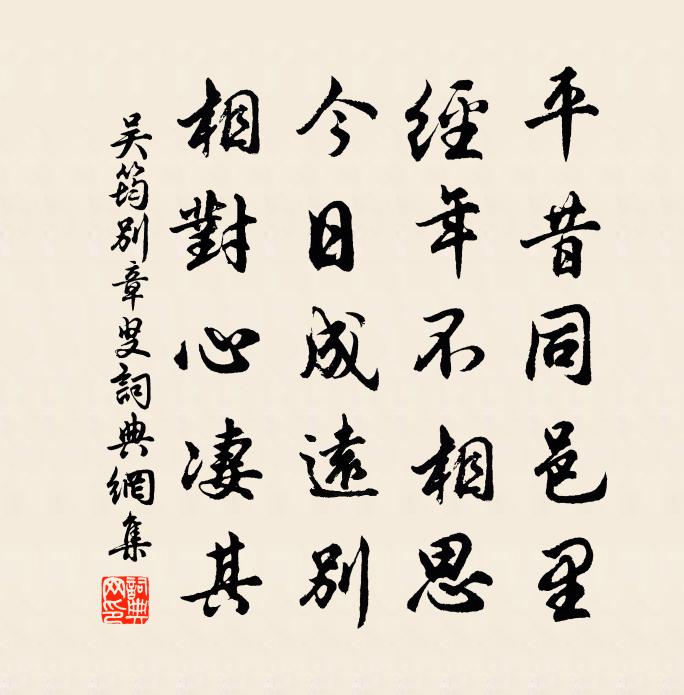 平昔同邑里
經年不相思
今日成遠別
相對心凄其
吳筠別章叟詞典網集
詞典網印